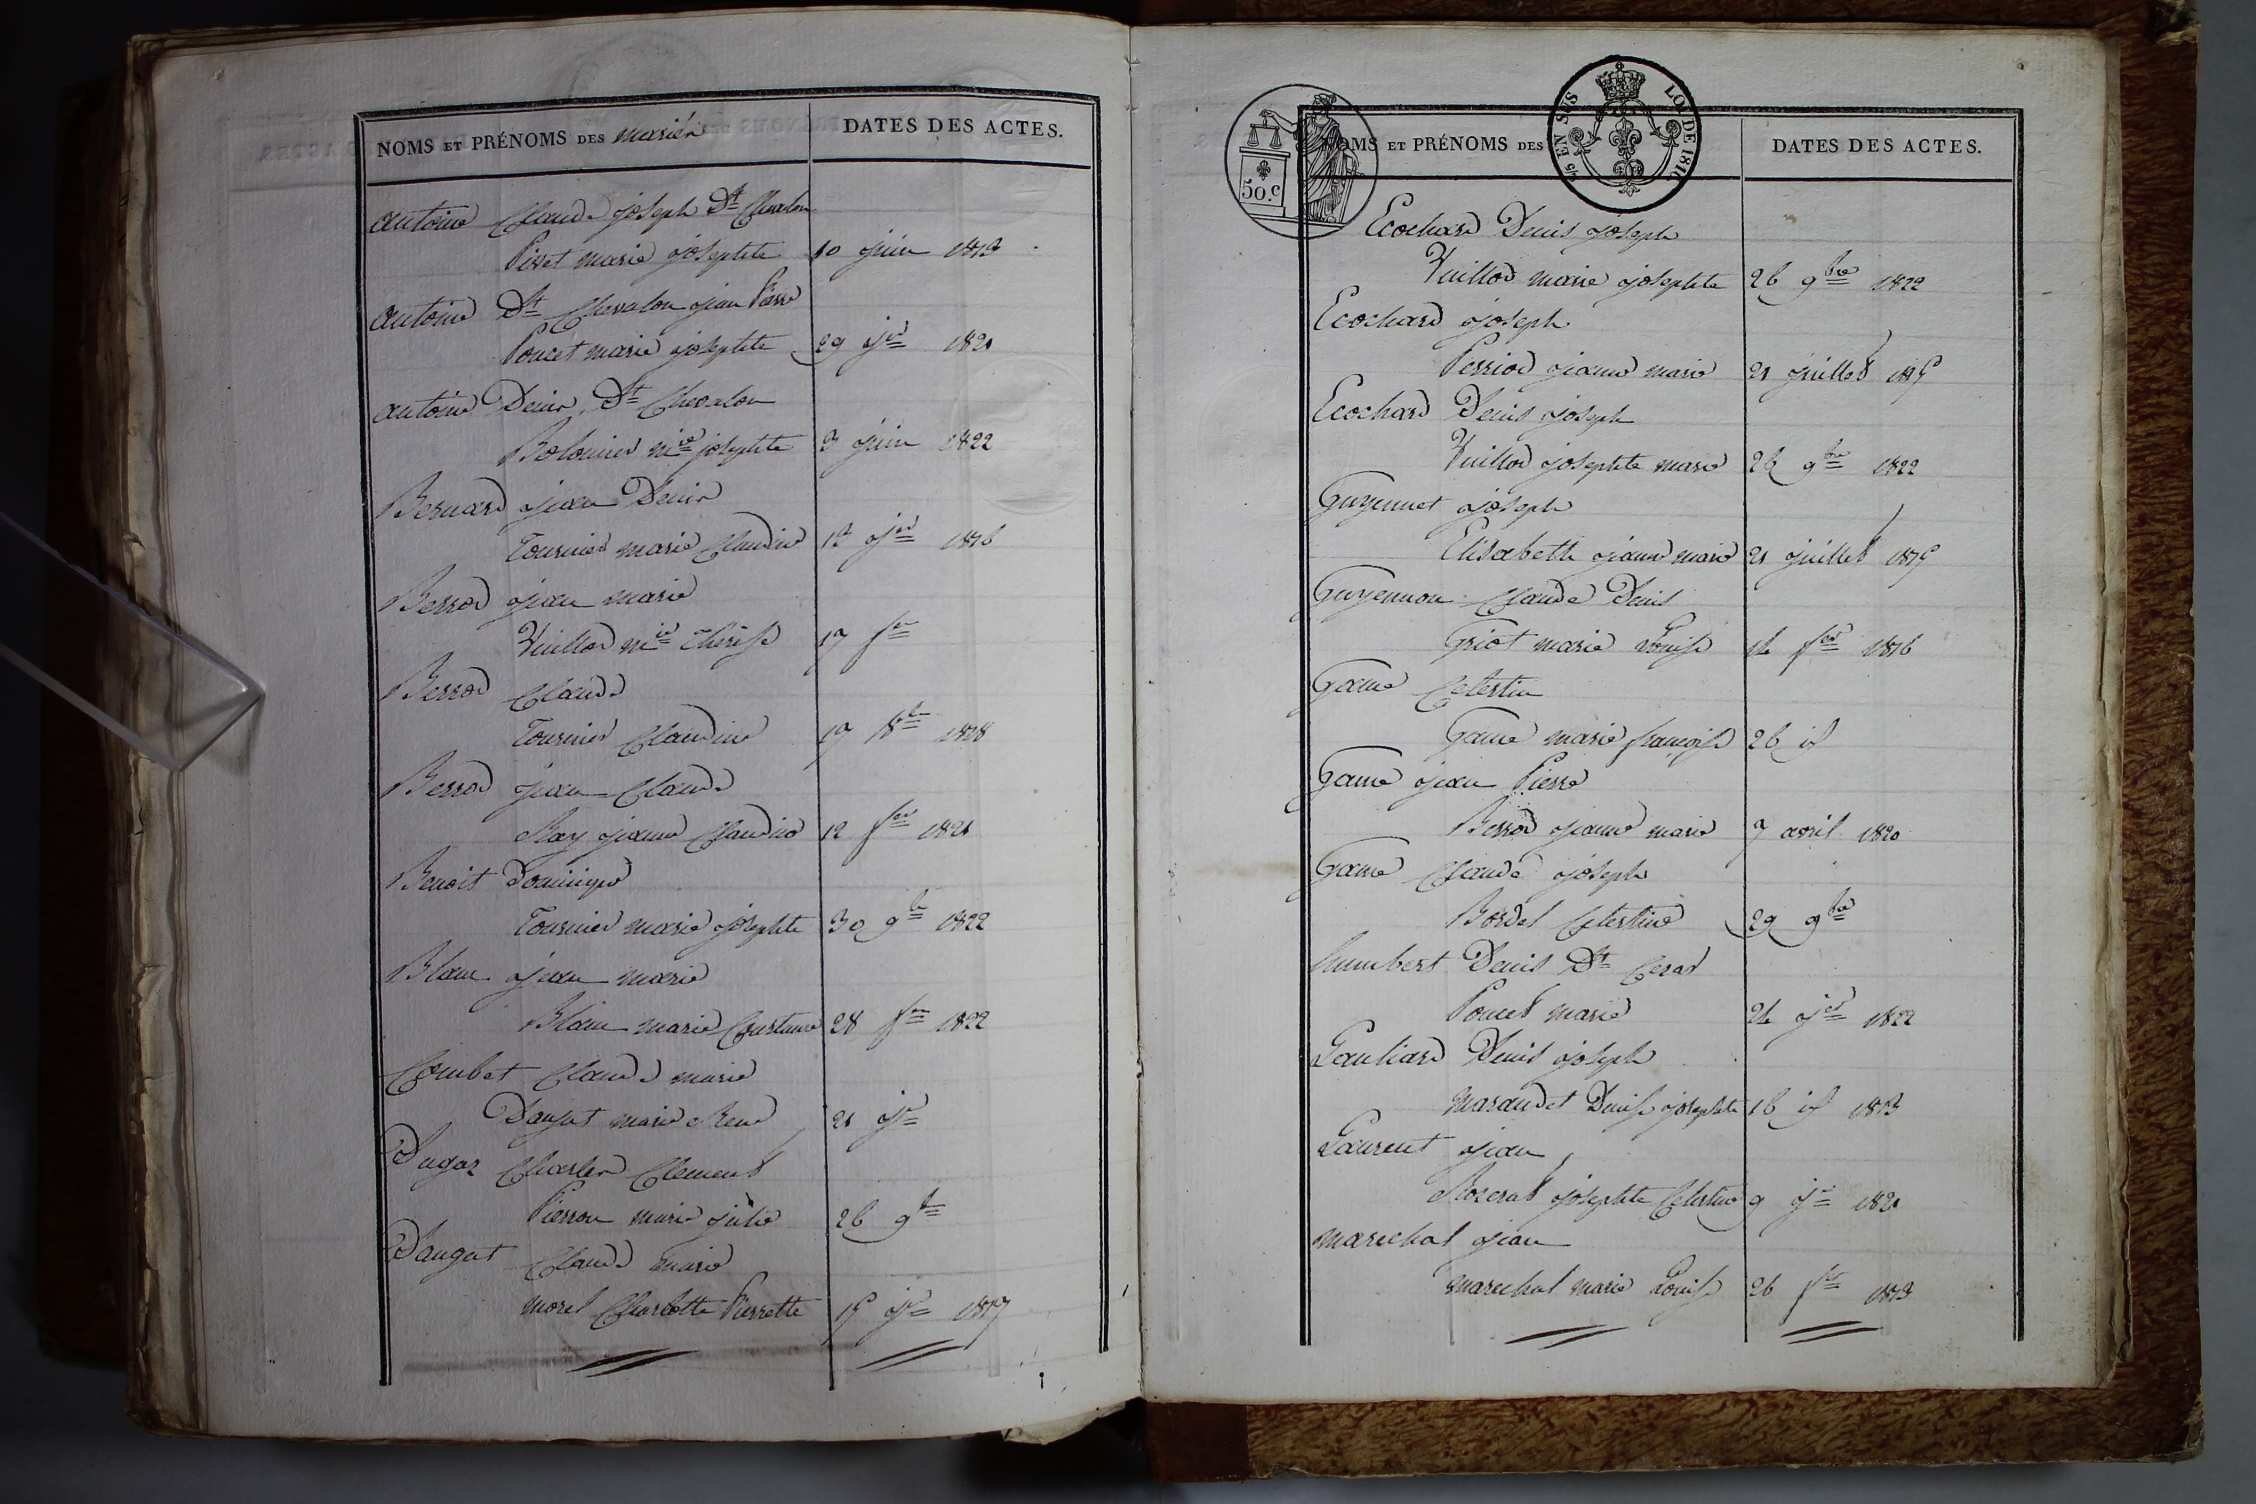 NOMS ET PRÉNOMS DES mariés
DATES DES ACTES.
antoine Claude joseph Dt Chevalon
Pivet marie josephte 10 juin 1813
antoine Dt Chevalon jean Pierre
Poncet marie josephte 29 jer 1821
antoine Denis Dt Chevalon
mie josephte 3 juin 1822
Bernard jean Denis
Tournier marie Claudine jer 1816
Berrod jean marie
Vuillod mie Therese 17 fer
Berrod Claude
Tournier Claudine 17 8bre 1818
Berrod jean Claude
Ray jeanne Claudine 12 fer 1821
Benoit Dominique
Tournier marie josephte 30 9bre 1822
Blanc jean marie
Blanc marie Constance 28 fer 1822
Combet Claude marie
marie Rene 21 jer
Dugas Charles Clement
Pierron marie julie 26 9bre
Daugat Claude marie
morel Charlotte Pierrette 15 jer 1817
50.C
5/5 EN SUS LOI DE 1816
NOMS ET PRÉNOMS DES
DATES DES ACTES.
Ecochard Denis joseph
Vuillod marie josephte 26 9bre 1822
Ecochard joseph
Perriod jeanne marie 21 juillet 1815
Ecochard Denis joseph
Vuillod josephte marie 26 9bre 1822
Guyennet joseph
Elisabeth jeanne marie 21 juillet 1815
Guyennon Claude Denis
Griot marie Louise 14 fer 1816
Game Celestin
Game marie françoise 26 id
Game jean Pierre
Berrod jeanne marie 7 avril 1820
Game Claude joseph
Bordet Celestine 29 9bre
humbert Denis Dt Cezar
Poncet marie 24 jer 1822
Denis joseph
marandet Denise josephte 16 id 1813
Laurent jean
Rozerat josephte Celestine 9 jer 1821
marechal jean
marechal marie Louise 26 fer 1813